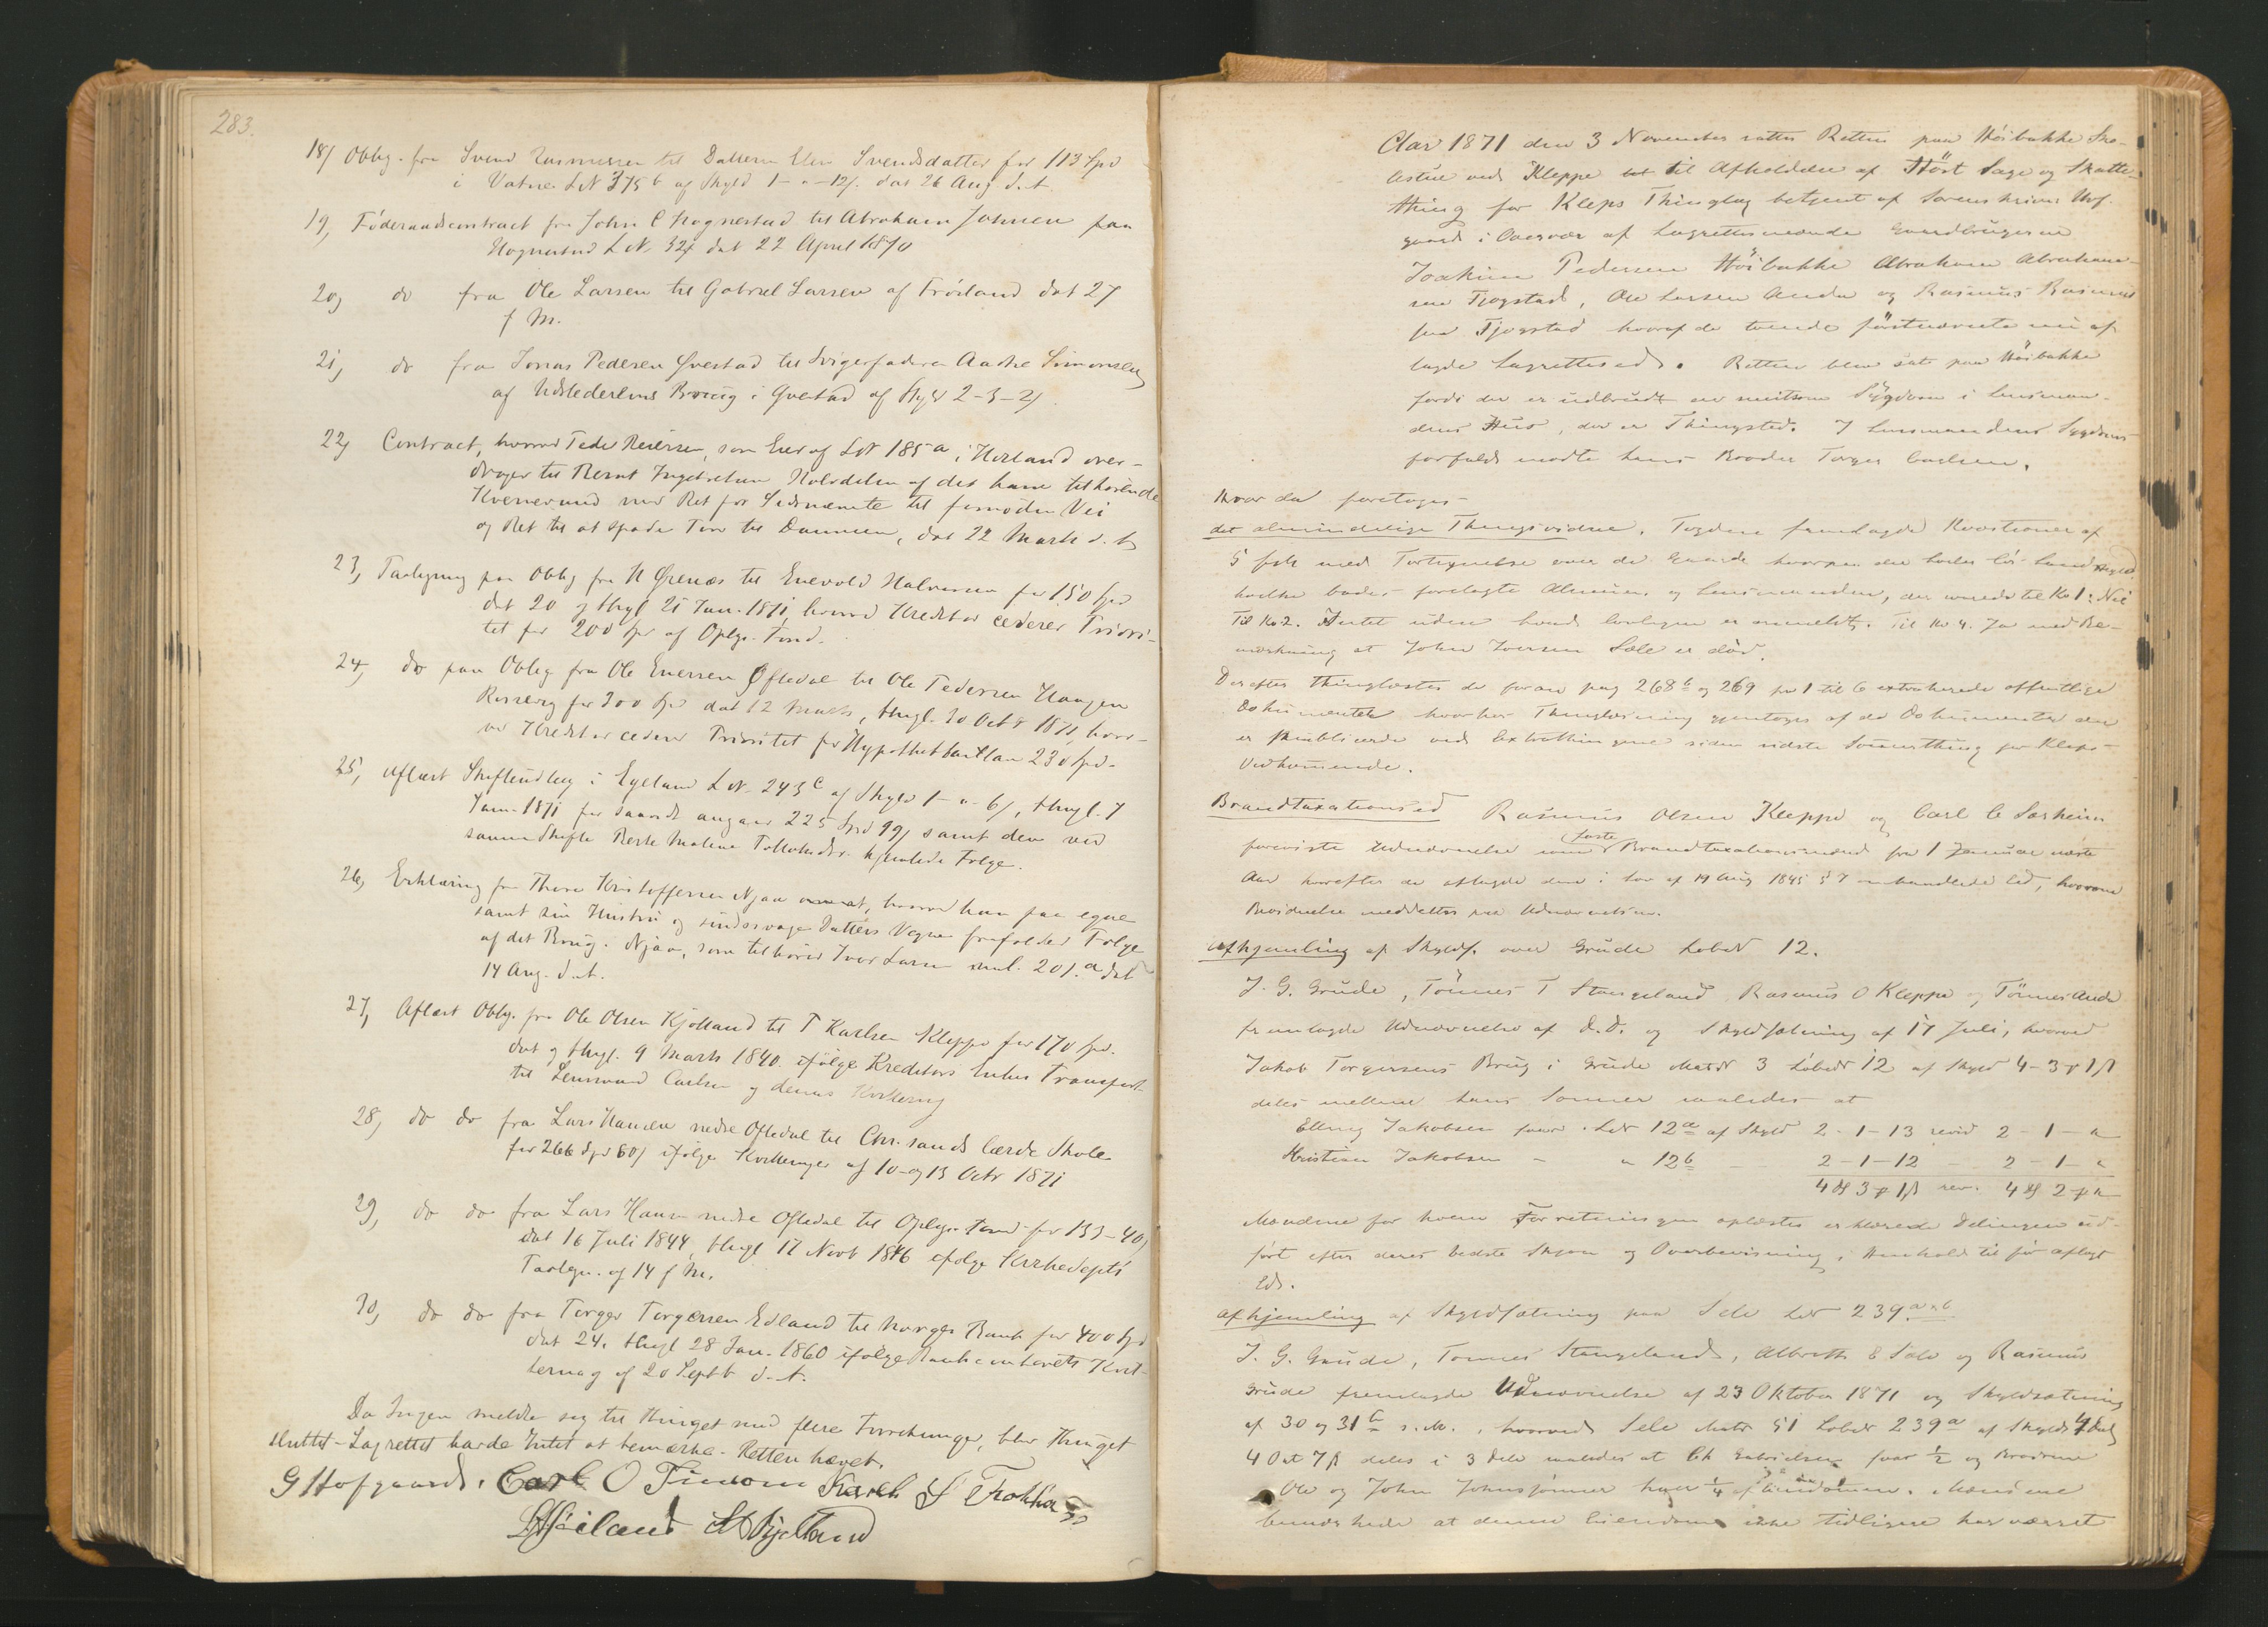 283.
18/ Oblig. fra Svend Rasmussen til Datteren Elen Svendsdatter for 113 Spd
i Vatne LN 375 b af Skyld 1 - " - 12/. dat 26 Aug d. A.
19, Föderaadscontract fra John C Hognestad til Abraham Johnsen paa
Hognestad L N. 324 dat 22 April 1870
20, do fra Ole Larsen til Gabriel Larsen af Fröiland dat 27
f M.
21, do fra Jonas Pedersen Qvestad til Svigerfaderen Aadne Simonsen
af Udstederens Brug i Qvestad af Skyld 2-3-2/
22, Contract, hvorved Peder Reiersen, som Eier af LN 185 a i Horland over-
drager til Bernt Ingebretsen Halvdelen af det ham tilhörende
Kvernevand med Ret for Sidstnævnte til fornöden Vei
og Ret til at spade Torv til Dammen, dat 22 Marts d. A.
23, Paategning paa Oblig fra N Örenæs til Enevold Halvorsen for 150 Spd
dat 20 og thgl 21 Jan. 1871, hvorved Kreditor cederer Priori-
tet for 200 Spd af Oplys. Fond.
24, do paa Oblig fra Ole Enersen Öfstedal til Ole Pedersen Haugen
for 300 Spd dat 12 Marts, thgl. 30 Octr 1871, hvor-
ved Kreditor cederer Prioritet for Hypothekbanklaan 230 Spd.
25, Aflæst Skifteudlæg i Egeland L N. 243 c af Skyld 1 - " - 6/, thgl. 7
Jan. 1871 for saavidt angaar 225 Spd 99/ samt den ved
samme Skifte Berte Maline Tollaksdtr. hjemlede Folge.
26, Erklæring fra Thore Kristoffersen Njaa, hvorved han paa egne
samt sin Hustru og sindssvage Datters Vegne frafalder Folge
af det Brug i Njaa, som tilhörer Iver Larsen ml. 201. a dat
14 Aug. d. A.
27, Aflæst Oblig. fra Ole Olsen Kjölland til T Karlsen Kleppe for 170 Spd.
dat og thgl. 9 Marts 1840. ifölge Kreditors Enkes Transport
til Lensmand Carlsen og dennes Kvittering
28, do do fra Lars Hansen nedre Öfstedal til Chr.sands lærde Skole
for 266 Spd 60/ ifölge Kvitteringer af 10 og 13 Octr 1871
29, do do fra Lars Hansen nedre Öfstedal til Oplys. Fond for 133-40/
dat 16 Juli 1844, thgl 17 Novb 1846 ifölge Kirkedepts
Paategn. af 14 f M.
30, do do fra Torger Torgersen Edland til Norges Bank for 400 Spd
dat 24. thgl 28 Jan. 1860 ifölge Bankcontorets Kvit-
tering af 20 Septb d. A.
Da Ingen meldte sig til thinget med flere Forretninger, blev thinget
sluttet - Lagrettet havde Intet at bemærke. Retten hævet.
G Hofgaard. Carl O
Kjelland
Aar 1871 den 3 November sattes Retten paa Höibakke Sko-
lestue ved Kleppe til Afholdelse af Höst Sage og Skatte-
thing for Kleps Thinglag betjent af Sorenskriver Hof-
gaard i Overvær af Lagrettesmændene Gaardbrugerne
Joakim Pedersen Höibakke Abraham Abraham-
sen Tjogstad, Ole Larsen Anda og Rasmus Rasmus
sen Tjogstad hvoraf de tvende förstnævnte nu af
lagde Lagrettesed. Retten blev sat paa Höibakke
fordi der er udbrudt en smitsom Sygdom i Lensman-
dens Huus, der er Thingsted. I Lensmandens Sygdoms
forfald mödte hans Broder Torger Carlsen.
Hvor da foretoges
det almindelige Thingsvidne. Fogden fremlagde Kvæstioner af
5 fsk med Fortegnelse over de Gaarde hvorpaa der hviler Skyld
hvilke bades forelagte Almuen og Lensmanden, der svarede til No 1: Nei
Til No 2. Intet uden hvad er anmeldt. Til No 4. Ja med Be-
mærkning at John Iversen Sæle er död.
Derefter thinglæstes de foran pag 268 b og 269 fra 1 til 6 extraherede offentlige
Dokumenter hvorhos Thinglæsning gjentoges af de Dokumenter der
er publicerede ved Extrathingene siden sidste Sommerthing for Kleps
Vedkommende.
Brandtaxationsed Rasmus Olsen Kleppe og Carl C Særheim
faste
foreviste Udnævnelse som Brandtaxationsmænd fra 1 Januar næste
Aar hvorefter de aflagde den i Lov af 19 Aug 1845 § 7 omhandlede Ed, hvorom
Bevidnelse meddeltes paa Udnævnelsen.
Afhjemling af Skyldf. over Grude Löbe N 12.
J. G. Grude, Tönnes T Stangeland Rasmus O Kleppe og Tönnes Anda
fremlagde Udnævnelse af d. D. og Skyldsætning af 17 Juli, hvorved
Jakob Torgersens Brug i Grude Matr N 3 Löbe N 12 af Skyld 4-3 ort 1 ß
deles mellem hans Sönner saaledes at
Elling Jakobsen faar LN 12 a af Skyld 2-1-13 revid 2-1-"
Kristian Jakobsen - " 12 b 2-1-12 - 2-1-"
4 D 3 ort 1 ß rev. 4 D 2 ort "
Mændene for hvem Forretningen oplæstes erklærede Delingen ud-
fört efter deres bedste Skjön og Overbevisning, i Henhold til för aflagt
Ed.
Afhjemling af Skyldsætning paa Sele LN 239. a & b
J. G. Grude, Tönnes Stangeland, Albreth E Sele og Rasmus
Grude fremlagde Udnævnelse af 23 Oktober 1871 og Skyldsætning
af 30 og 31 te s. M., hvorved Sele Matr 51 Löbe N 239 a af Skyld 4 Dal
4 Ort 7 ß deles i 3 Dele saaledes at Gabrielsen faar ½ og Brödrene
Ole og John Johnssönner hver ¼ af Eiendommen. Mændene
bemærkede at denne Eiendom ikke tidligere har været